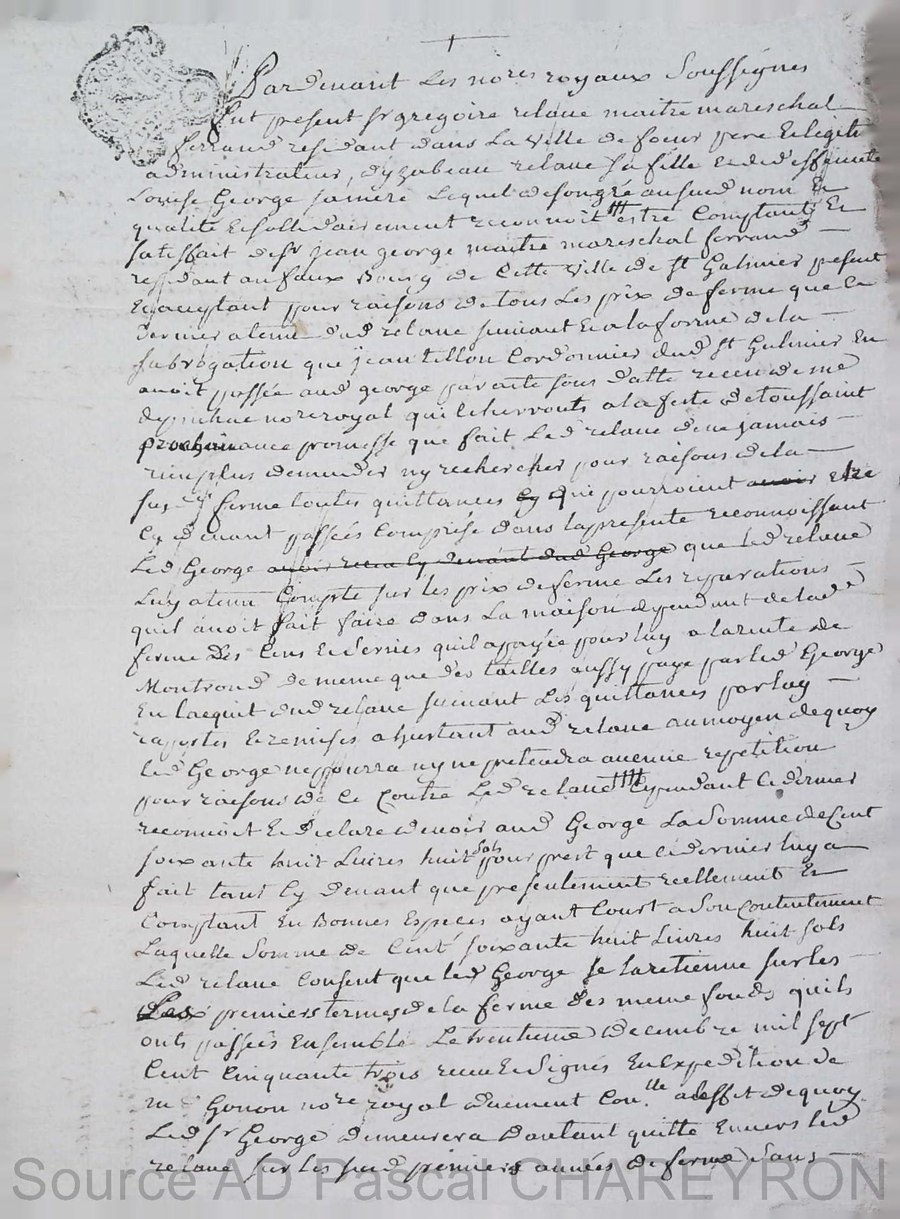 Pardevant Les no.res royaux Soussignes
fut present sr gregoire relaue maitre mareschal
ferrand residant dans La ville de feurs pere Et legite
administrateur, d'yzabeau relaue sa fille Et de deffunte
Louise George sa mere Lequel de son gré ausud nom Et
qualité Et sollidairement reconnoit estre Comptant Et
satisfait de sr jean george maitre mareschal ferrand
residant au faux Bourg de Cette ville de st Galmier present
Et aceptant pour raisons de tous Les prix de ferme que Ce
dernier a tenue dud relaue suivant Et a la forme de la
subrogation que jean tillon Cordonnier dud st Galmier En
avoit passée aud george par acte sous datte receu de me
no.re royal qui Echerront a la feste de toussaint
prochaine avec promesse que fait Led relaue de ne jamais
rien plus demander ny rechercher pour raisons de la
susd ferme toutes quittances qui pourroient avoir Etre
Cy devant passées Comprise dans la presente reconnoissant
Led George avoir receu Cy devant dud George que Led relaue
Luy a tenu Compte sur les prix de ferme Les reparations
quil avoit fait faire dans La maison dependant de lade
ferme Des Cens Et servis quil a payée pour luy a la rente de
Montrond de meme que des tailles aussy paye par Led George
En l'acquit dud relaue suivant Les quittances par luy
raportes Et remises a l'instant aud relaue au moyen de quoy
Led George ne pourra ny ne pretendra aucune repetition
pour raisons de Ce Contre Led relaue Cependant Ce dernier
reconnoit Et declare devoir aud George La Somme de Cent
soixante huit Livres huit sols pour prest que Ce dernier luy a
fait tant Cy devant que presentement reellement Et
Comptant En Bonnes Especes ayant Court a Son Contentement
Laquelle Somme de Cent soixante huit Livres huit sols
Led relaue Consent que Led George se la retienne sur les
Les premiers termes de la ferme des meme fonds quils
onts passées Ensemble Le trentieme decembre mil sept
Cent Cinquante trois receu Et signés En Expedition de
me Gonon no.re royal duement Con.lle a l'effet de quoy
Led sr George demeurera d'autant quitte Envers Led
relaue sur les susd premiers années de ferme Sans
Source AD Pascal CHAREYRON